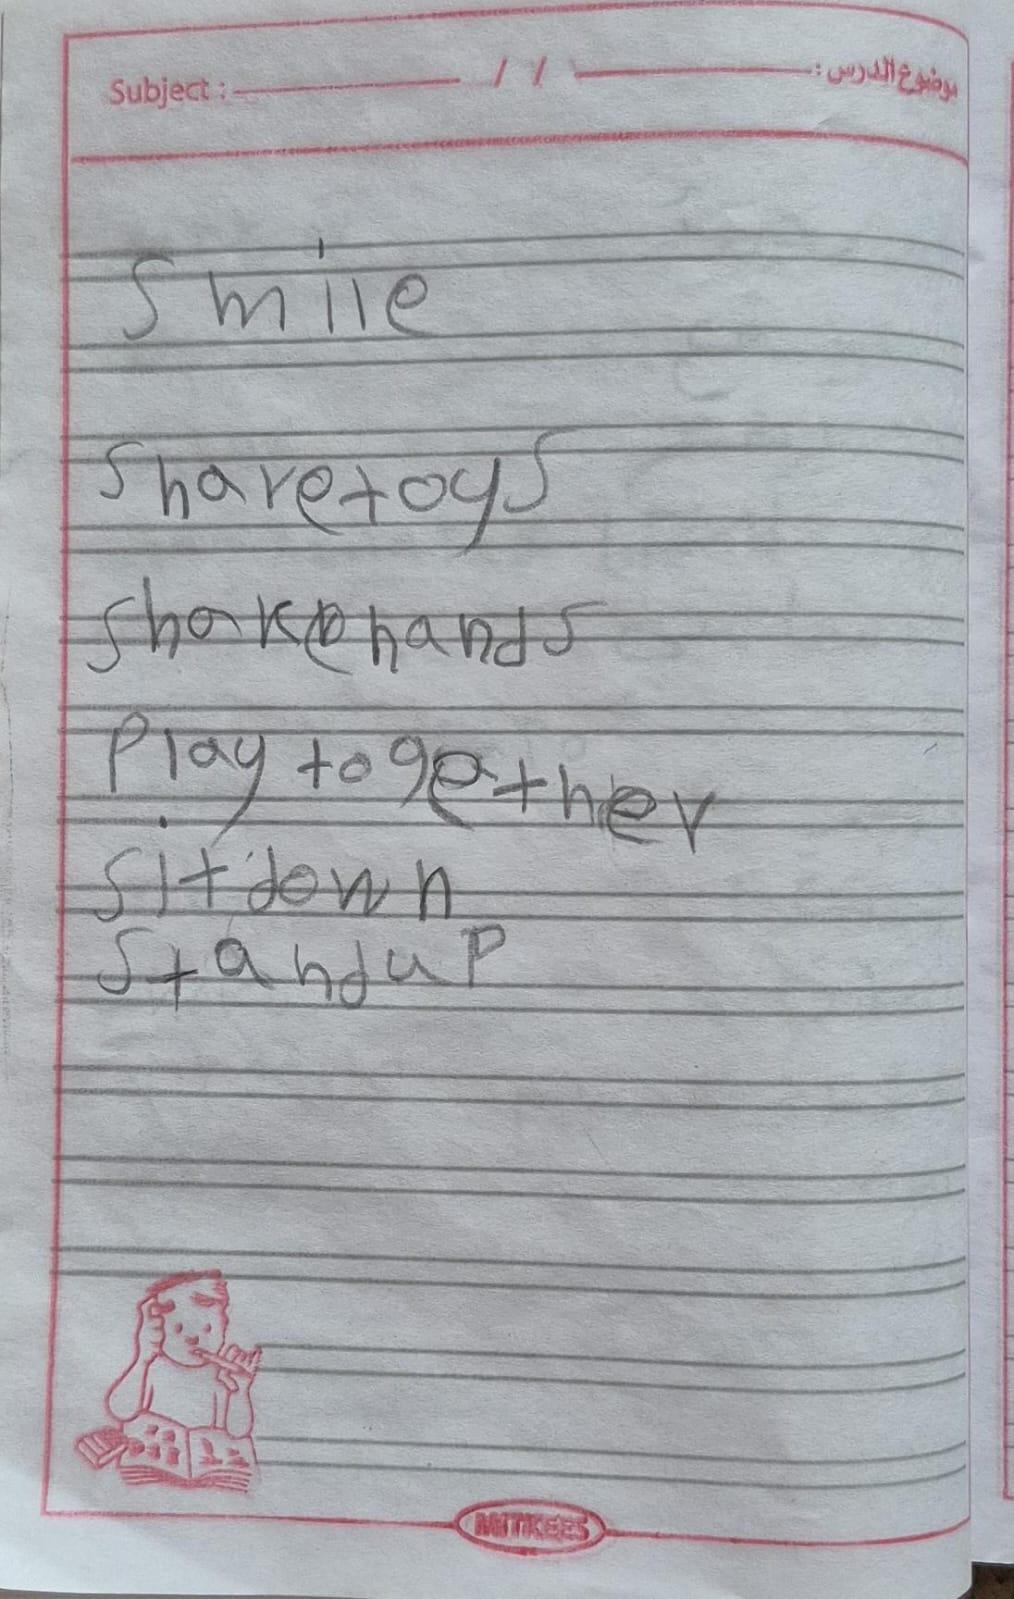 Subject : / / موضوع الدرس :
Smile
Sharetoys
Shakehands
Play together
Sitdown
StanduP
MITKEES